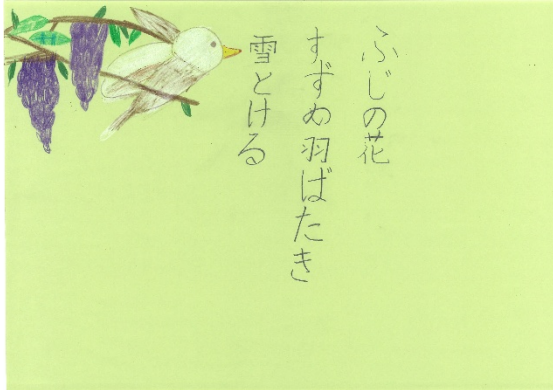 ふじの花
すずめ羽ばたき
雪とける